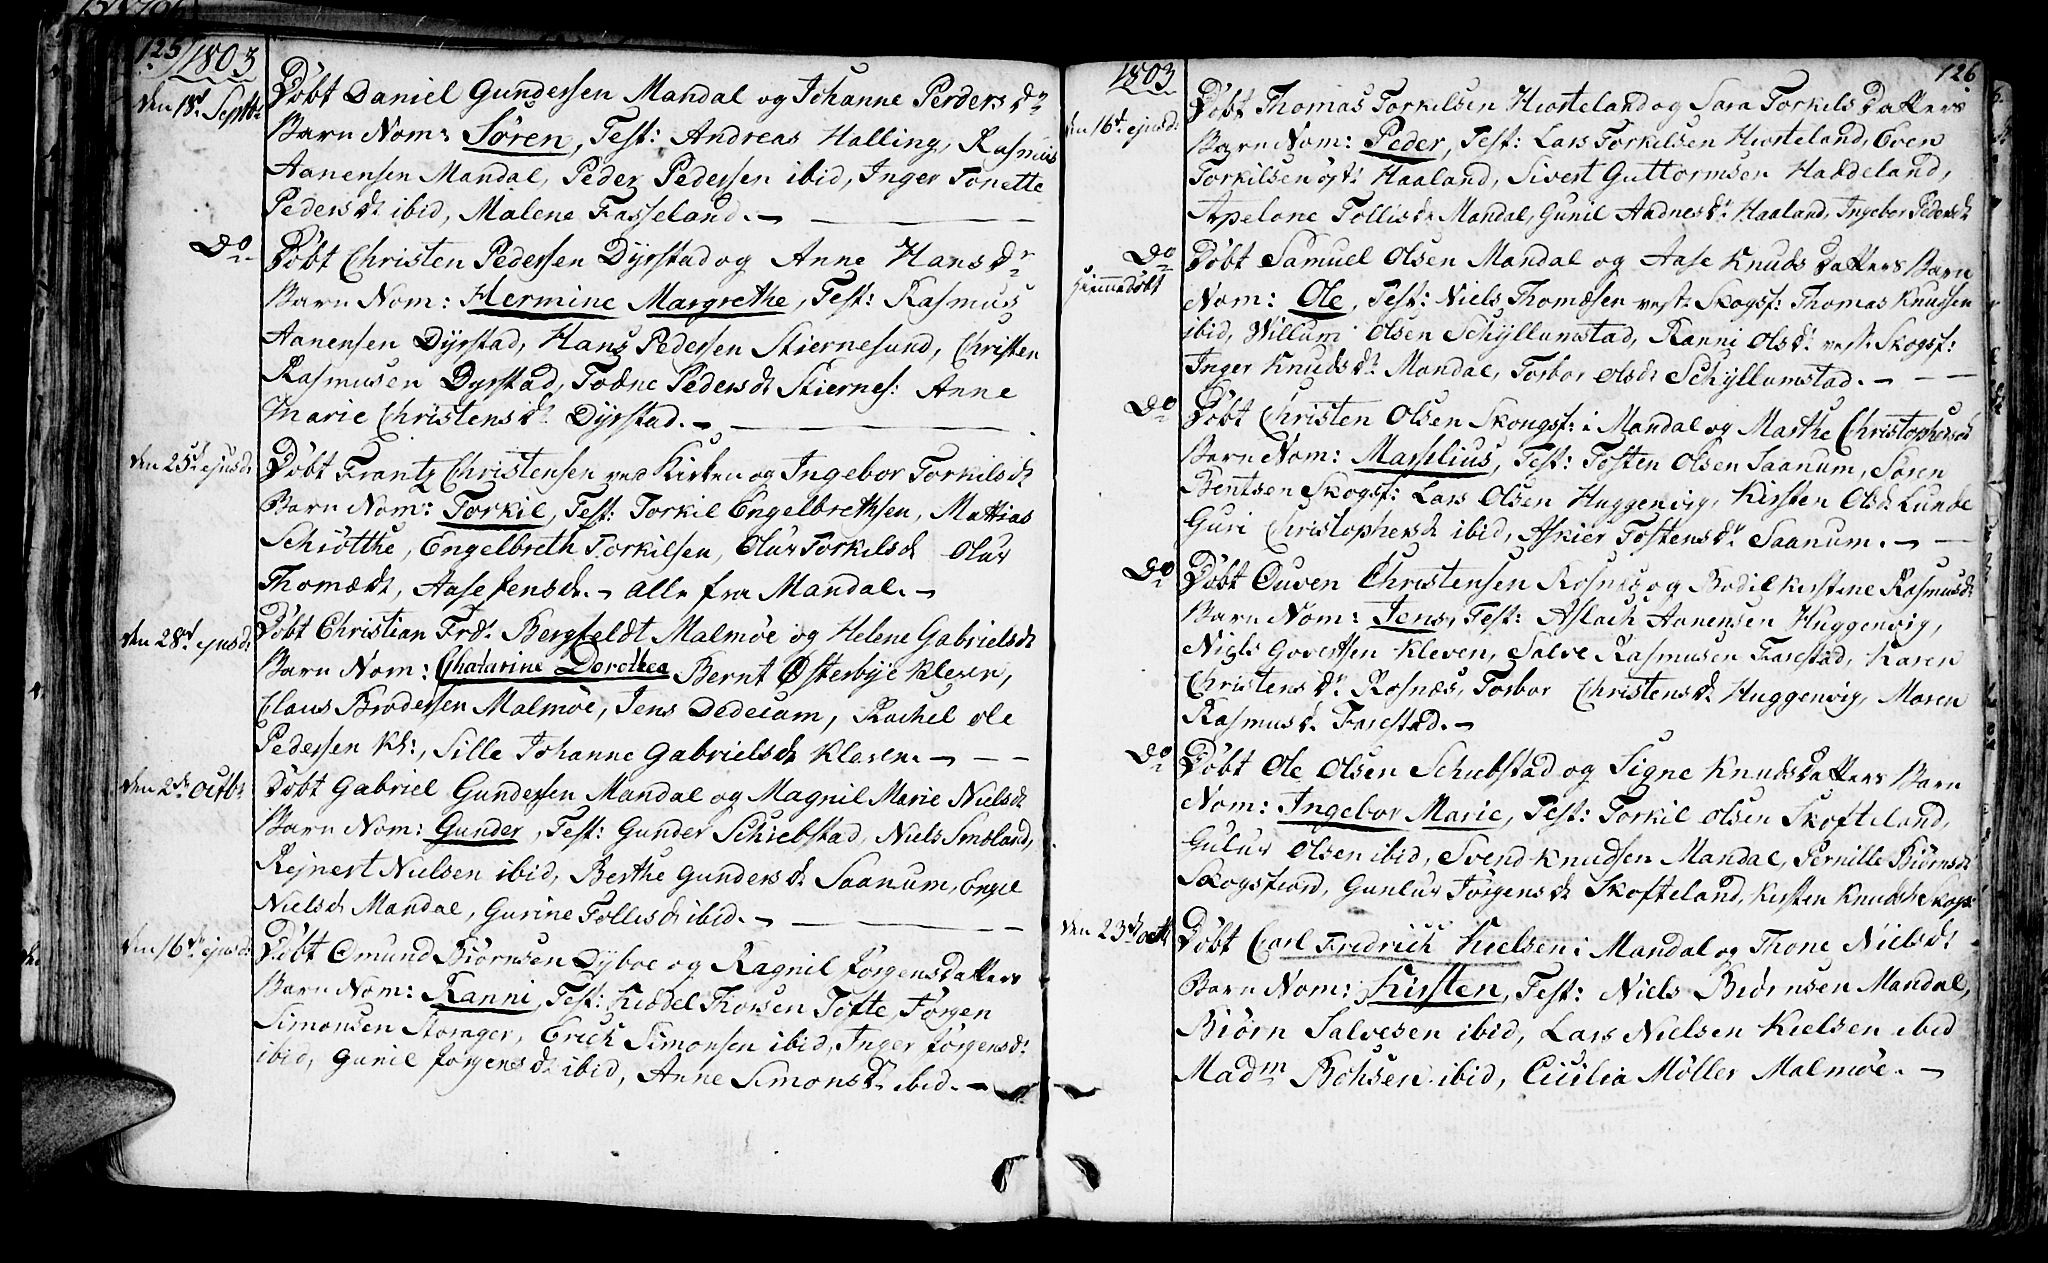 125 1803
den 18d Septbr Døbt Daniel Gundersen Mandal og Johanne Perders Dr
Barn Nom: Søren, Test: Andreas Halling, Rasmus
Aanensen Mandal, Peder Pedersen ibid, Inger Tonette
Pedersdr ibid, Malene Fasseland. –
Do Døbt Christen Pedersen Dyrstad og Anne Hansdr
Barn Nom: Hermine Margrethe, Test: Rasmus
Aanensen Dyrstad, Hans Pedersen Stiernesund, Christen
Rasmusen Dyrstad, Tobne Pedersdr Stiernes: Anne
Marie Christensdr Dyrstad. –
den 25d ejusd: Døbt Frantz Christensen ved Kirken og Ingebor Torkilsdr
Barn Nom: Torkil, Test: Torkil Engelbrethsen, Mattias
Schiötthe, Engelbreth Torkilsen, Olur Torkilsdr Olur
Thomædr, Aase Jensdr. – alle fra Mandal. –
den 28d ejusd: Døbt Christian Frd: Bergfeldt Malmöe og Helene Gabrielsdr
Barn Nom: Chatarine Dorothea Bernt Østerbye Kleven,
Claus Brodersen Malmöe, Jens Dedecam, Rachel ole
Pedersen Kl:, Sille Johanne Gabrielsdr Kleven. –
den 2d Octbr Døbt Gabriel Gundersen Mandal og Magnil Marie Nielsdr
Barn Nom: Gunder, Test: Gunder Schiebstad, Niels Smoland,
Rejnert Nielsen ibid, Berthe Gundersdr Saanum, Engel
Nielsdr Mandal, Gurine Follisdr ibid. –
den 16d ejusd: Døbt Omund Biörnsen Dyboe og Ragnil JörgensDatters
Barn Nom: Ranni, Test: Kiddel Thorsen Tofte, Jörgen
Simonsen Storager, Erich Simonsen ibid, Inger Jörgensdr
ibid, Gunil Jörgensdr ibid, Anne Simonsdr ibid. –
1803 126
den 16d ejusd: Døbt Thomas Torkilsen Hiorteland og Sara Torkils Datters
Barn Nom: Peder, Test: Lars Torkilsen Hiorteland, Even
Torkilsen öst: Haaland, Sivert Guttormsen Haddeland,
Apelone Tollisdr Mandal, Gunil Aadnesdr Haaland, Ingebor Pedersdr
Do Døbt Samuel Olsen Mandal og Aase Knuds Datters Barn
Hiemmedøbt Nom: Ole, Test: Niels Thomæsen vest: Skogsf: Thomas Knudsen
ibid, Willum Olsen Schyllumstad, Ranni Olsdr vest: Skogsf:
Inger Knudsdr Mandal, Torbor Olsdr Schyllumstad. –
Do Døbt Christen Olsen Skongsf: i Mandal og Marthe Christophersdr
Barn Nom: Marselius, Test: Tosten Olsen Saanum, Sören
Bentsen Skogsf: Lars Olsen Huggenvig, Kirsten Olsdr Lunde
Guri Christophersdr ibid, Askier Tostensdr Saanum. –
Do Døbt Ouven Christensen Rosnes og Bodil Kirstine Rasmusdr
Barn Nom: Jens, Test: Aslach Aanensen Huggenvig,
Niels Govertsen Kleven, Salve Rasmusen Farestad, Karen
Christensdr Rosnæs, Torbor Christensdr Huggenvig, Maren
Rasmusdr Farestad. –
Do Døbt Ole Olsen Schiebstad og Signe Knuds Datters Barn
Nom: Ingebor Marie, Test: Torkil Olsen Skofteland,
Gulur Olsen ibid, Svend Knudsen Mandal, Pernille Biörnsdr
Skogsfiord, Gunlur Jörgensdr Skofteland, Kirsten Knudsdr Skogs:
den 23d octbr Døbt Carl Fredrich Kielsen i Mandal og Thone Nielsdr
Barn Nom: Kirsten, Test: Niels Biörnsen Mandal,
Biörn Salvesen ibid, Lars Nielsen Kielsen ibid
Madm Bohsen ibid, Cicilia Möller Malmöe. –